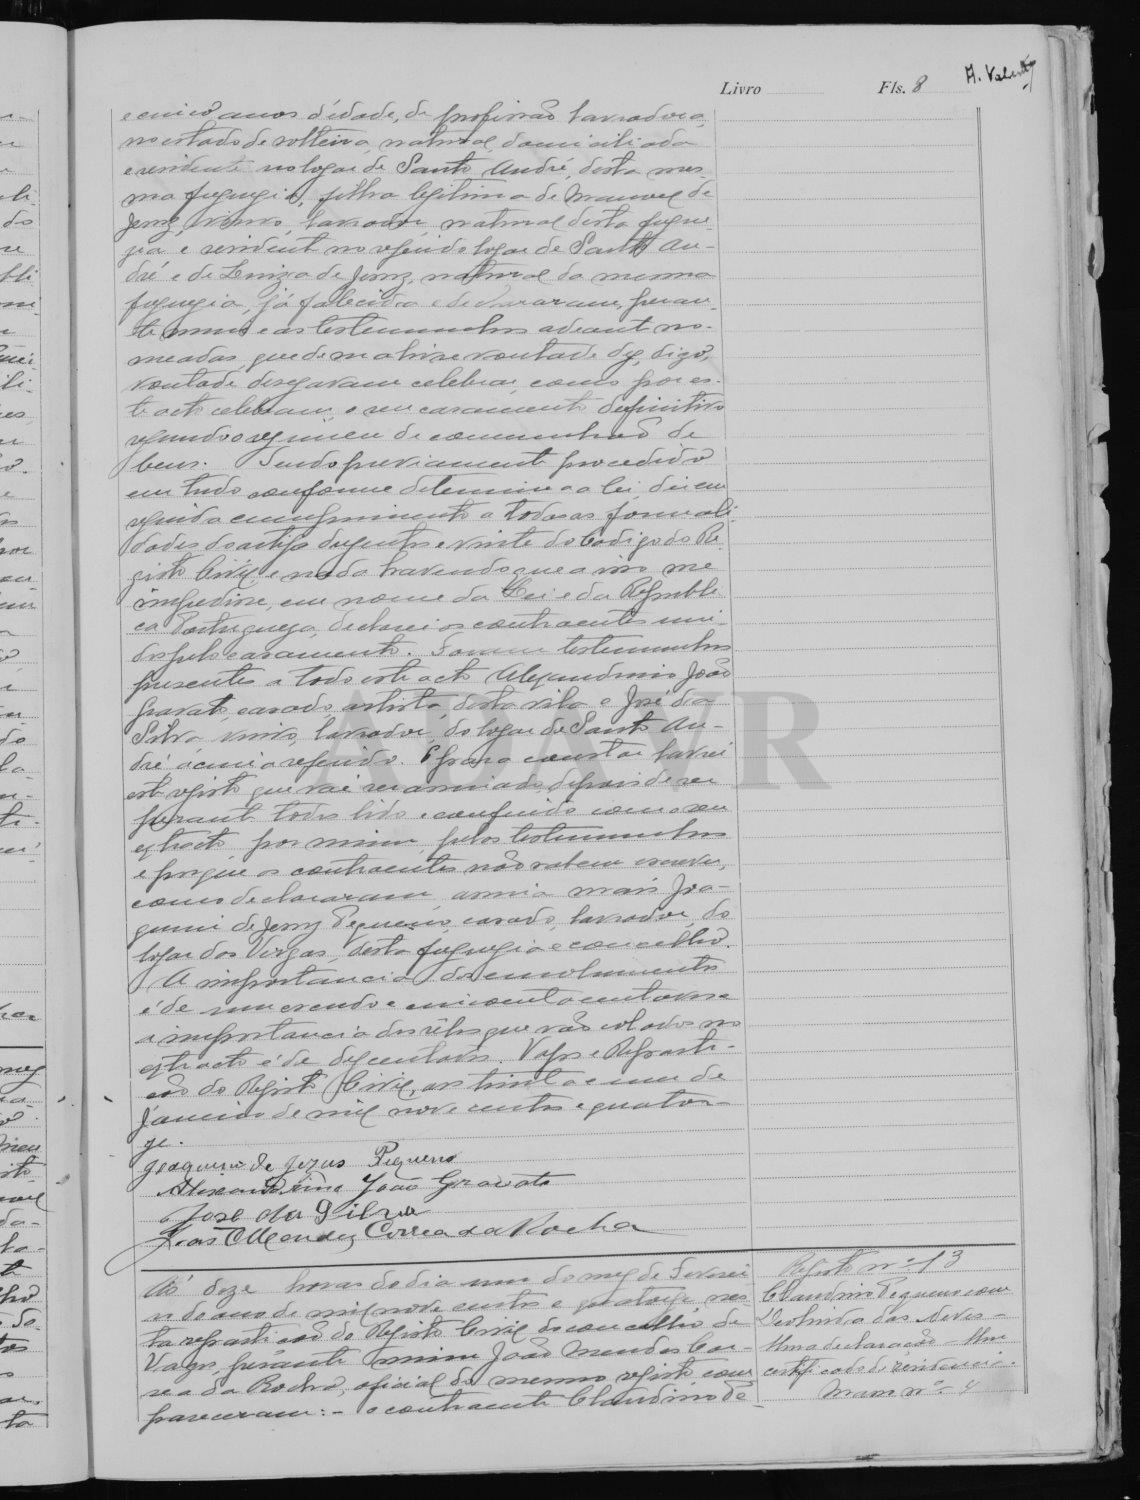 Livro Fls. 8
e cinco anos d'idade, de profissão lavradora,
no estado de solteira, natural, domiciliada
e residente no logar de Santo André, desta mes-
ma freguezia, filha legitima de Manuel de
Jesuz, viuvo, lavrador, natural desta fregue-
zia e residente no referido logar de Santo An-
dré e de Luiza de Jesuz, natural da mesma
freguezia, já falecida e declararam, peran-
te mim e as testemunhas adeante no-
meadas, que de sua livre vontade dez, digo,
vontade desejavam celebrar, como por es-
te acto celebram o seu casamento definitivo
segundo o regimen de communhão de
bens. Tendo previamente procedido
em tudo conforme determina a lei, dei em
seguida cumprimento a todas as formali-
dades do artigo duzentos e vinte do Codigo do Re-
gisto Civil, e nada havendo que a isso me
impedisse, em nome da Lei e da Republi-
ca Portugueza, declarei os contraentes uni-
dos pelo casamento. Foram testemunhas
presentes a todo este acto Alexandrino João
Gravato, casado, artista, desta vila e José da
Silva, viuvo, lavrador, do logar de Santo An-
dré acima referido. E para constar lavrei
este registo que vai ser assinado, depois de ser
perante todos lido e conferido com o seu
extracto, por mim, pelas testemunhas
e porque os contraentes não sabem escrever,
como declararam, assina mais Joa-
quim de Jesuz Pequeno, casado, lavrador, do
logar das Vergas, desta freguezia e concelho.
A importancia dos emolumentos
é de um escudo e cincoenta centavos e
a importancia dos sêlos que vão colados no
extracto é de dez centavos. Vagos e Reparti-
ção do Registo Civil, aos trinta e um de
Janeiro de mil nove centos e quator-
ze.
Joaquim de Jezus Piqueno
Alixandrino João Gravato
José da Silva
João Mendes Correa da Rocha
Registo nº 13
Claudino Pequeno com
Deolinda das Neves -
Uma declaração - Um
certificado de residencia.
Maço nº 4
Ás doze horas do dia um do mez de Feverei-
ro do ano de mil nove centos e quatorze, nes-
ta repartição do Registo Civil do concelho de
Vagos, perante mim João Mendes Cor-
rea da Rocha, oficial do mesmo registo, com-
pareceram: - o contraente Claudino de